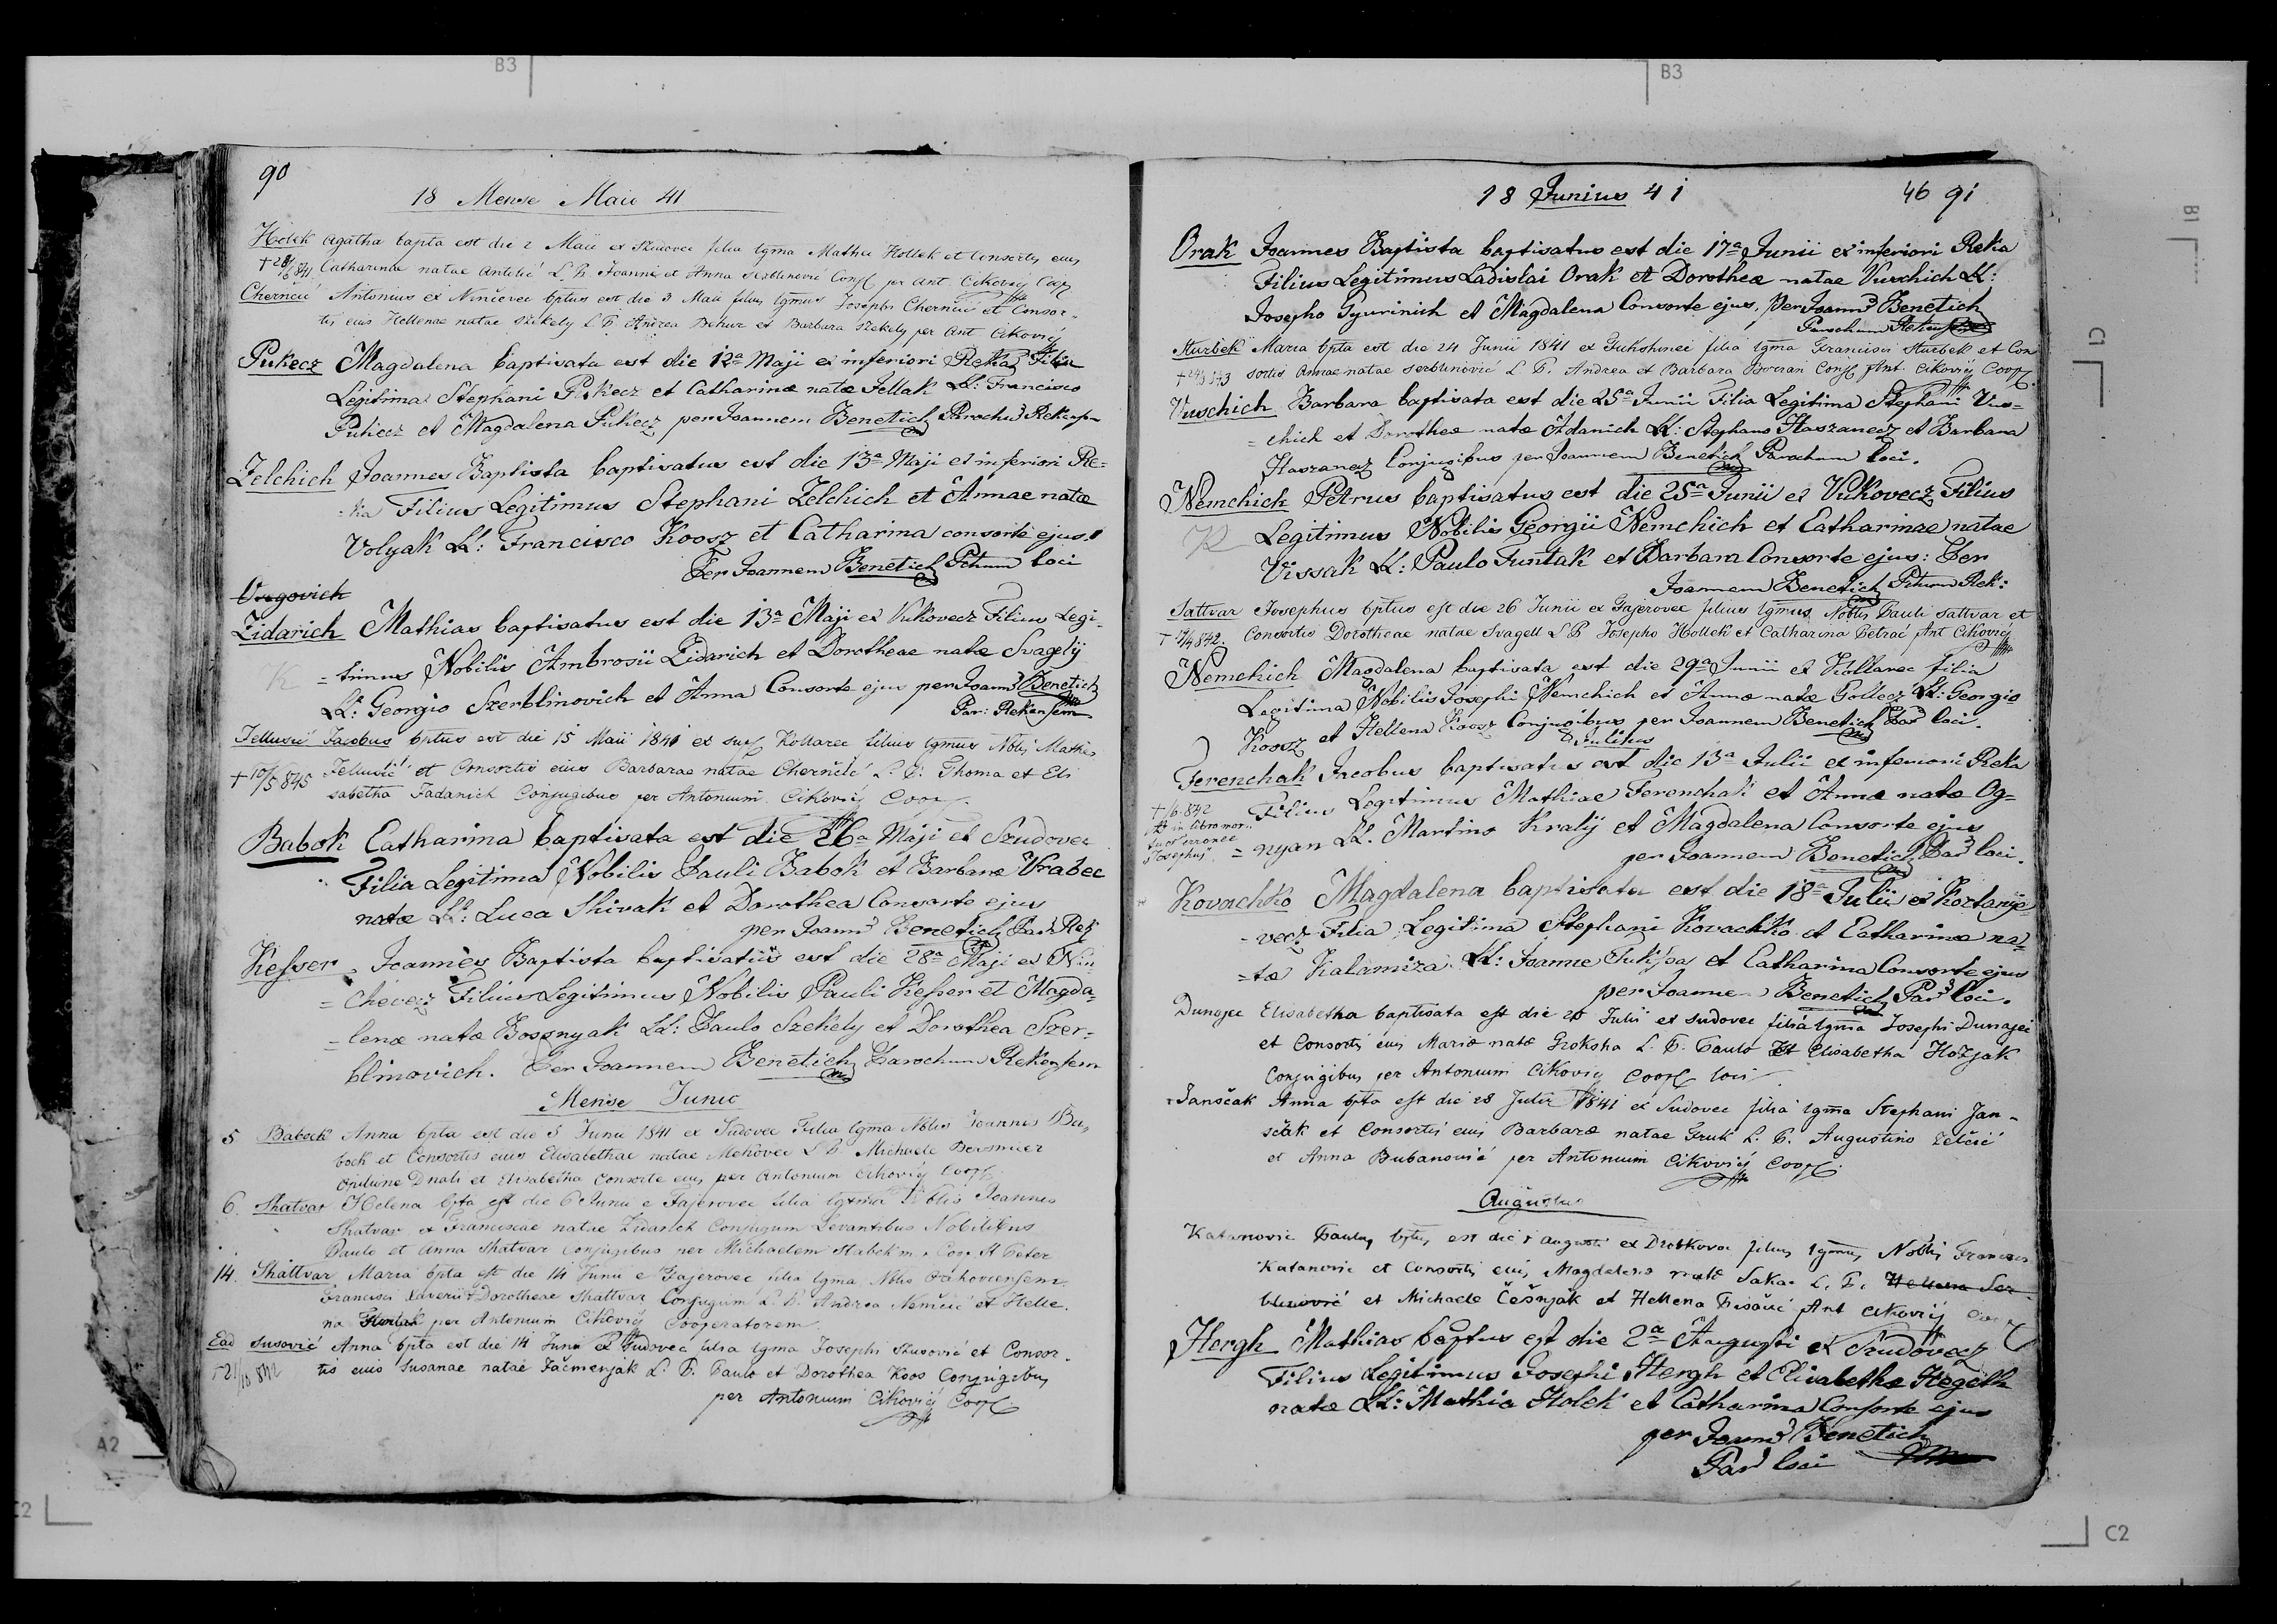 B3
B3
B1
C1
A2
C2
C2
90
18 Mense Maio 41
Holek Agatha bapta est die 2 Maii ex Szudovec filia lgma Mathiae Hollek et Consortis eius
† 28/6 841 Catharinae natae Antolić L. P. Joanne et Anna Serblinović Conj per Ant. Cikovij Coop
Cherncić Antonius ex Ninčevec bptus est die 3 Maii filius lgmus Josephi Cherncić et Consor-
tis eius Hellenae natae Szekely L P. Andrea Behur et Barbara Szekely per Ant Cikovij
Pukecz Magdalena baptisata est die 12a Maji ex inferiori Reka Filia
Legitima Stephani Pukecz et Catharinæ natæ Jellak LL: Francisco
Pukecz et Magdalena Pukecz per Joannem Benetich Parochum Rekensem
Zelchich Joannes Baptista baptisatus est die 13a Maji ex inferiori Re=
=ka Filius Legitimus Stephani Zelchich et Annae natæ
Volyak LL: Francisco Koosz et Catharina consorte ejus.
Per Joannem Benetich Pchum loci
Vugovich
Zidarich Mathias baptisatus est die 13a Maji ex Vukovecz Filius Legi-
K = timus Nobilis Ambrosii Zidarich et Dorotheae natæ Svagely
LL: Georgio Szerblinovich et Anna Consorte ejus per Joann Benetich
Par: Rekensem
Jellusić Jacobus bptus est die 15 Maii 1841 ex Kottarec filius lgmus Noblis Mathiæ
† 10/5 845 Jellusić et Consortis eius Barbarae natae Cherncić L. P. Thoma et Eli
sabetha Fadanich Conjugibus per Antonium Cikovij Coop.
Babok Catharina baptisata est die 26a Maji ex Szudovec
Filia Legitima Nobilis Pauli Babok et Barbaræ Vrabec
natæ LL: Luca Shivak et Dorothea Consorte ejus
per Joann Benetich Par Rek
Kesser Joannes Baptista baptisatus est die 28a Maji ex Nin
= chevecz Filius Legitimus Nobilis Pauli Kesser et Magda-
= lenæ natæ Bosznyak LL: Paulo Szekely et Dorothea Szer-
blinovich. Per Joannem Benetich Parochum Rekensem
Mense Junio
5 Babock Anna bpta est die 5 Junii 1841 ex Sudovec Filia lgma Noblis Joannis Ba-
bock et Consortis eius Elisabethae natae Mehovec L P. Michaele
et Elisabetha Consorte eius per Antonium Cikovij Coop.
6. Shatvar Helena bpta est die 6 Junii e Fajerovec filia lgtma Noblis Joannis
Shatvar et Franciscae natae Zidarich Conjugum Levantibus Nobilibus
Paulo et Anna Shatvar Conjugibus per Michaelem Coop. St Peter
14. Shattvar Maria bpta est die 14 Junii e Fajerovec filia lgma Noblis
Francisci Xaverii & Dorotheae Shattvar Conjugum L. P. Andrea Nemčić et Helle.
na Funtak per Antonium Cikovij Cooperatorem
Ead Susović Anna bpta est die 14 Junii ex Sudovec filia lgma Josephi Szusović et Consor-
† 21/10 842 tis eius Susanae natae Jačmenjak L. P. Paulo et Dorothea Koos Conjugibus
per Antonium Cikovij Coop.
18 Junius 41
46 91
Orak Joannes Baptista baptisatus est die 17a Junii ex inferiori Reka
Filius Legitimus Ladislai Orak et Dorotheæ natae Vuschich LL:
Josepho Gyurinich et Magdalena Consorte ejus. Per Joann Benetich
Parochum Rekensem
Sturbek Maria bpta est die 24 Junii 1841 ex Gukshinec filia lgma Francisci Sturbek et Con
† 843 sortis Annae natae Serblinović L P. Andrea et Barbara Conj p Ant. Cikovij Coop.
Vuschich Barbara baptisata est die 25a Junii Filia Legitima Stephani Vus=
= chich et Dorotheæ natæ Adanich LL: Stephano Haszanecz et Barbara
Haszanecz Conjugibus per Joannem Benetich Parochum loci.
Nemchich Petrus baptisatus est die 25a Junii ex Vukovecz Filius
K Legitimus Nobilis Georgii Nemchich et Catharinae natae
Vissak LL: Paulo Funtak et Barbara Consorte ejus: Per
Joannem Benetich Pchum Rek:
Sattvar Josephus bptus est die 26 Junii ex Fajerovec filius lgmus Noblis Pauli Sattvar et
† 4 842. Consortis Dorotheae natae Svagell L P. Josepho Hollek et Catharina Petrac p Ant Cikovij
Nemchich Magdalena baptisata est die 29a Junii ex Kottarec filia
Legitima Nobilis Josephi Nemchich et Annæ natæ Gollecz LL: Georgio
Koosz et Hellena Koosz Conjugibus per Joannem Benetich Par loci.
Julius
Ferenchak Jacobus baptisatus est die 13a Julii ex inferiori Reka
† 1/6 842 Filius Legitimus Mathiae Ferenchak et Annæ natæ Og=
in libro mor-
tuor erronee
Josephus = nyan LL. Martino Kralij et Magdalena Consorte ejus
per Joannem Benetich Par loci.
Kovachko Magdalena baptisata est die 18a Julii ex Koztanye
- vecz Filia Legitima Stephani Kovachko et Catharinæ na=
=tæ Kalamiza LL: Joanne Tulissa et Catharina Consorte ejus
per Joannem Benetich Par loci.
Dunajec Elisabetha baptisata est die 20 Julii ex Sudovec filia lgma Josephi Dunajec
et Consortis eius Mariæ natæ Groksha L. P. Paulo Et Elisabetha Hozjak
Conjugibus per Antonium Cikovij Coop loci.
Janščak Anna bpta est die 28 Julii 1841 ex Sudovec filia lgma Stephani Jan-
sčak et Consortis eius Barbaræ natae Gruk L. P. Augustino Zelčić
et Anna Bubanović per Antonium Cikovij Coop.
Augustus
Katanovic Paulus bptus est die 1 Augusti ex Drobkovec filius lgmus Noblis Francisci
Katanovic et Consortis eius Magdalenæ natæ Sakač L. P. Hellena Ser-
blinović et Michaele Češnjak et Hellena Fisačić p Ant Cikovij Coop
Hergh Mathias baptus est die 2a Augusti ex Szudovecz
Filius Legitimus Josephi Hergh et Elisabethæ Hegeth
natæ LL: Mathia Holek et Catharina Consorte ejus
per Joann Benetich
Par loci